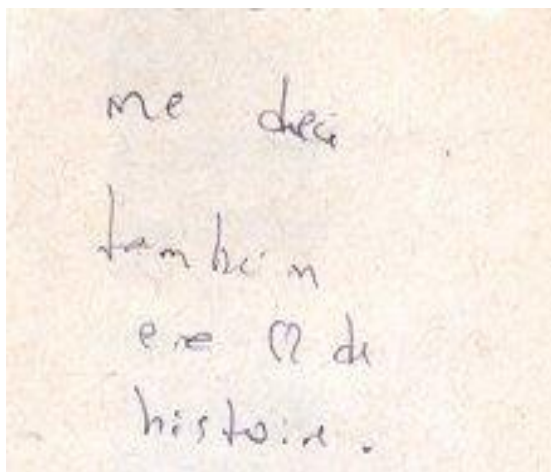 me decía
también
era de
historia.